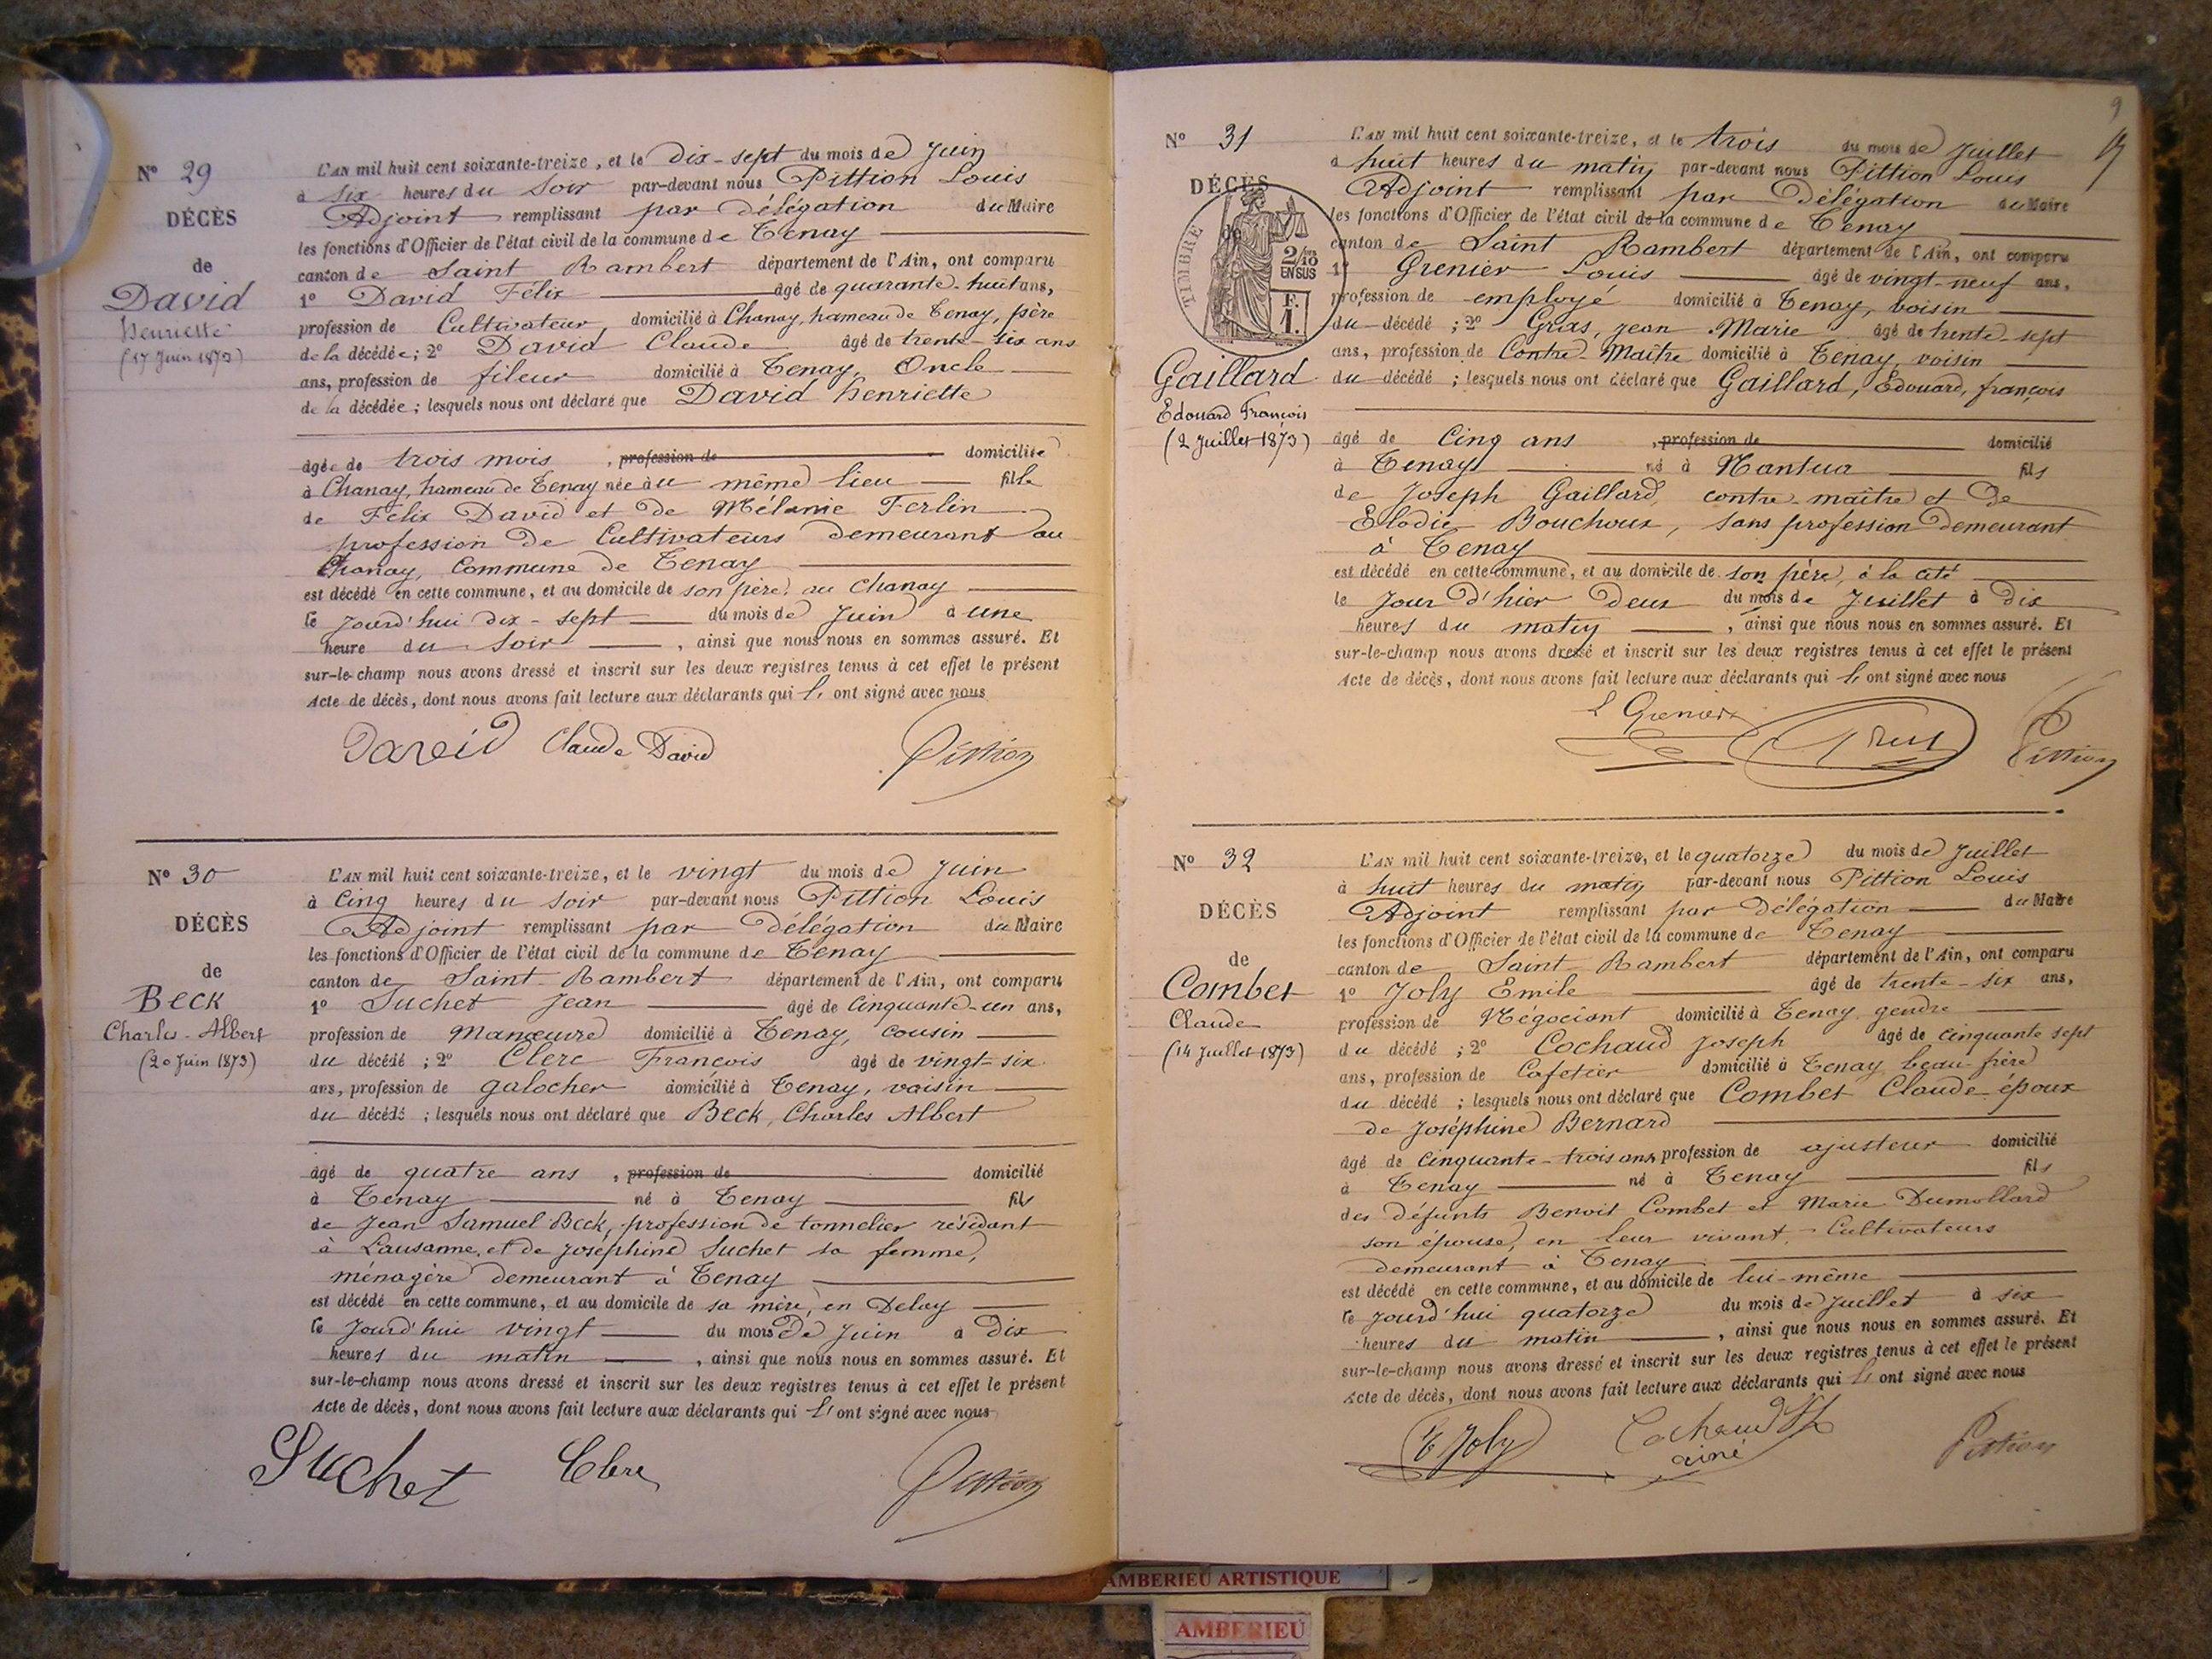 Nº 29
DÉCÈS
de
David
Henriette
(17 Juin 1873)
L'AN mil huit cent soixante-treize, et le dix-sept du mois de Juin
à six heures du soir par-devant nous Pittion Louis
Adjoint remplissant par délégation du Maire
les fonctions d'Officier de l'état civil de la commune de Tenay
canton de Saint Rambert département de l'Ain, ont comparu
1º David Félix âgé de quarante-huit ans,
profession de Cultivateur, domicilié à Chanay, hameau de Tenay, père
de la décédée; 2º David Claude âgé de trente-six ans
ans, profession de fileur domicilié à Tenay, Oncle
de la décédée; lesquels nous ont déclaré que David Henriette
âgée de trois mois, profession de domiciliée
à Chanay, hameau de Tenay née au même lieu fille
de Félix David et de Mélanie Ferlin
profession de Cultivateurs demeurant au
Chanay, Commune de Tenay
est décédé en cette commune, et au domicile de son père, au Chanay
le jourd'hui dix-sept du mois de Juin à une
heure du soir, ainsi que nous nous en sommes assuré. Et
sur-le-champ nous avons dressé et inscrit sur les deux registres tenus à cet effet le présent
Acte de décès, dont nous avons fait lecture aux déclarants qui l' ont signé avec nous
David Claude David Pittion
Nº 30
DÉCÈS
de
Beck
Charles-Albert
(20 Juin 1873)
L'AN mil huit cent soixante-treize, et le vingt du mois de Juin
à Cinq heures du soir par-devant nous Pittion Louis
Adjoint remplissant par délégation du Maire
les fonctions d'Officier de l'état civil de la commune de Tenay
canton de Saint-Rambert département de l'Ain, ont comparu
1º Suchet Jean âgé de Cinquante-un ans,
profession de Manœuvre domicilié à Tenay, cousin
du décédé; 2º Clerc François âgé de vingt-six
ans, profession de galocher domicilié à Tenay, voisin
du décédé; lesquels nous ont déclaré que Beck, Charles Albert
âgé de quatre ans, profession de domicilié
à Tenay né à Tenay fils
de Jean Samuel Beck, profession de tonnelier résidant
à Lausanne, et de Joséphine Suchet sa femme,
ménagère demeurant à Tenay
est décédé en cette commune, et au domicile de sa mère, en Delay
le jourd'hui vingt du mois de Juin à dix
heures du matin, ainsi que nous nous en sommes assuré. Et
sur-le-champ nous avons dressé et inscrit sur les deux registres tenus à cet effet le présent
Acte de décès, dont nous avons fait lecture aux déclarants qui l' ont signé avec nous
Suchet Clerc Pittion
9
Nº 31
DÉCÈS
de
TIMBRE
2/10
EN SUS
1 F.
Gaillard
Edouard François
(2 Juillet 1873)
L'AN mil huit cent soixante-treize, et le trois du mois de Juillet
à huit heures du matin par-devant nous Pittion Louis
Adjoint remplissant par Délégation du Maire
les fonctions d'Officier de l'état civil de la commune de Tenay
canton de Saint Rambert département de l'Ain, ont comparu
1º Grenier Louis âgé de vingt-neuf ans,
profession de employé domicilié à Tenay, voisin
du décédé; 2º Gras, Jean Marie âgé de trente-sept
ans, profession de Contre-Maître domicilié à Tenay voisin
du décédé; lesquels nous ont déclaré que Gaillard, Edouard, françois
âgé de Cinq ans, profession de domicilié
à Tenay né à Nantua fils
de Joseph Gaillard, contre-maître et de
Elodie Bouchoux, sans profession demeurant
à Tenay
est décédé en cette commune, et au domicile de son père, à la cité
le jour d'hier deux du mois de Juillet à dix
heures du matin, ainsi que nous nous en sommes assuré. Et
sur-le-champ nous avons dressé et inscrit sur les deux registres tenus à cet effet le présent
Acte de décès, dont nous avons fait lecture aux déclarants qui l' ont signé avec nous
L Grenier Gras Pittion
Nº 32
DÉCÈS
de
Combet
Claude
(14 Juillet 1873)
L'AN mil huit cent soixante-treize, et le quatorze du mois de Juillet
à huit heures du matin par-devant nous Pittion Louis
Adjoint remplissant par Délégation du Maire
les fonctions d'Officier de l'état civil de la commune de Tenay
canton de Saint Rambert département de l'Ain, ont comparu
1º Joly Emile âgé de trente-six ans,
profession de Négociant domicilié à Tenay gendre
du décédé; 2º Cochaud Joseph âgé de cinquante sept
ans, profession de Cafetier domicilié à Tenay beau-frère
du décédé; lesquels nous ont déclaré que Combet Claude époux
de Joséphine Bernard
âgé de cinquante-trois ans profession de ajusteur domicilié
à Tenay né à Tenay fils
des défunts Benoit Combet et Marie Dumollard
son épouse, en leur vivant, Cultivateurs
demeurant à Tenay
est décédé en cette commune, et au domicile de lui-même
le jourd'hui quatorze du mois de Juillet à six
heures du matin, ainsi que nous nous en sommes assuré. Et
sur-le-champ nous avons dressé et inscrit sur les deux registres tenus à cet effet le présent
Acte de décès, dont nous avons fait lecture aux déclarants qui l' ont signé avec nous
E Joly Cochaud Pittion
ainé
AMBERIEU ARTISTIQUE
AMBERIEU